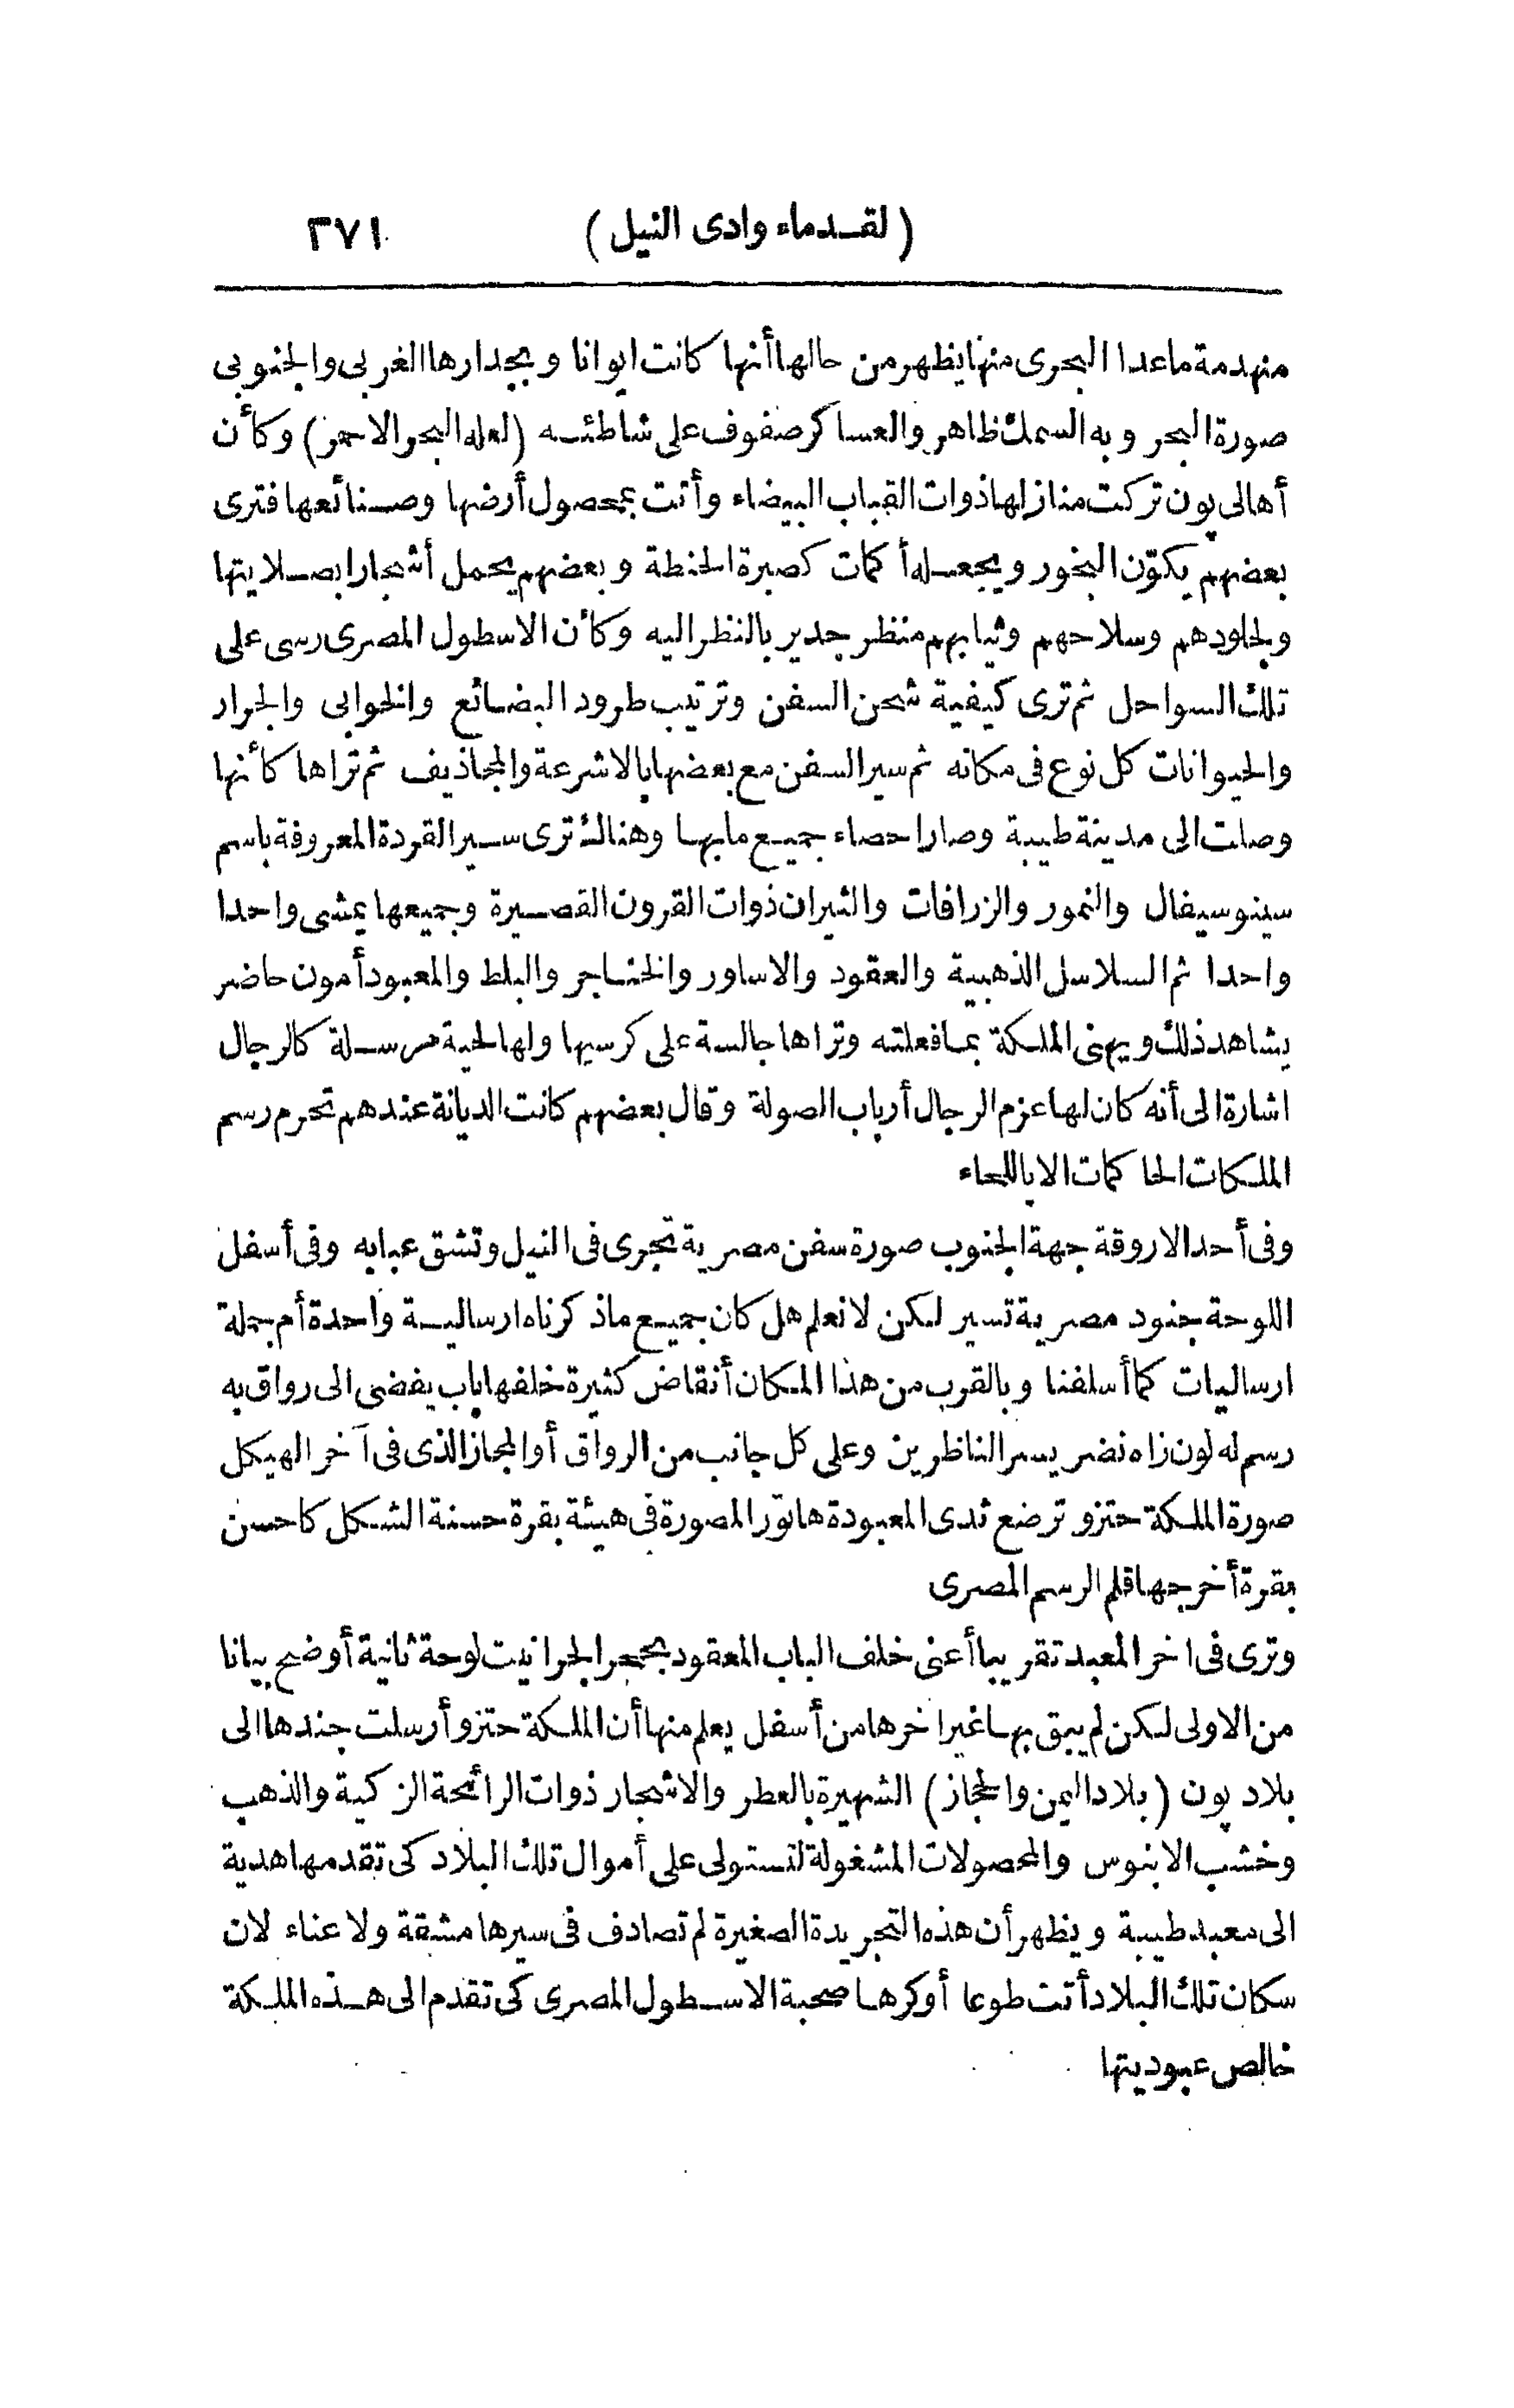 (لقدماء وادى النيل) ٣٧١
منهدمة ماعدا البحرى منها يظهر من حالها أنها كانت ايوانا وبجدارها الغربى والجنوبى
صورة البحر وبه السمك ظاهر والعساكر صفوف على شاطئه (لعله البحر الاحمر) وكأن
أهالى پون تركت منازلها ذوات القباب البيضاء وأتت بمحصول أرضها وصنائعها فترى
بعضهم يكوّن البخور ويجعله أكمات كصبرة الحنطة وبعضهم يحمل أشجارا بصلايتها
ولجلودهم وسلاحهم وثيابهم منظر جدير بالنظر اليه وكأن الاسطول المصرى رسى على
تلك السواحل ثم ترى كيفية شحن السفن وترتيب طرود البضائع والخوابى والجرار
والحيوانات كل نوع فى مكانه ثم سير السفن مع بعضها بالاشرعة والمجاذيف ثم تراها كأنها
وصلت الى مدينة طيبة وصار احصاء جميع مابها وهناك ترى سير القردة المعروفة باسم
سينوسيفال والنمور والزرافات والثيران ذوات القرون القصيرة وجميعها يمشى واحدا
واحدا ثم السلاسل الذهبية والعقود والاساور والخناجر والبلط والمعبود أمون حاضر
يشاهد ذلك ويهنى الملكة بمافعلته وتراها جالسة على كرسيها ولها لحية مرسلة كالرجال
اشارة الى أنه كان لها عزم الرجال أرباب الصولة وقال بعضهم كانت الديانة عندهم تحرم رسم
الملكات الحاكمات الا باللحاء
وفى أحد الاروقة جهة الجنوب صورة سفن مصرية تجرى فى النيل وتشق عبابه وفى أسفل
اللوحة جنود مصرية تسير لكن لانعلم هل كان جميع ماذكرناه ارسالية واحدة أم جملة
ارساليات كما أسلفنا وبالقرب من هذا المكان أنقاض كثيرة خلفها باب يفضى الى رواق به
رسم له لون زاه نضر يسر الناظرين وعلى كل جانب من الرواق أو المجاز الذى فى آخر الهيكل
صورة الملكة حتزو ترضع ثدى المعبودة هاتور المصورة فى هيئة بقرة حسنة الشكل كاحسن
بقرة أخرجها قلم الرسم المصرى
وترى فى اخر المعبد تقريبا أعنى خلف الباب المعقود بحجر الجرانيت لوحة ثانية أوضح بيانا
من الاولى لكن لم يبق بها غير اخرها من أسفل يعلم منها أن الملكة حتزو أرسلت جندها الى
بلاد پون (بلاد اليمن والحجاز) الشهيرة بالعطر والاشجار ذوات الرائحة الزكية والذهب
وخشب الابنوس والمحصولات المشغولة لتستولى على أموال تلك البلاد كى تقدمها هدية
الى معبد طيبة ويظهر أن هذه التجريدة الصغيرة لم تصادف فى سيرها مشقة ولا عناء لان
سكان تلك البلاد أتت طوعا أوكرها صحبة الاسطول المصرى كى تقدم الى هذه الملكة
خالص عبوديتها